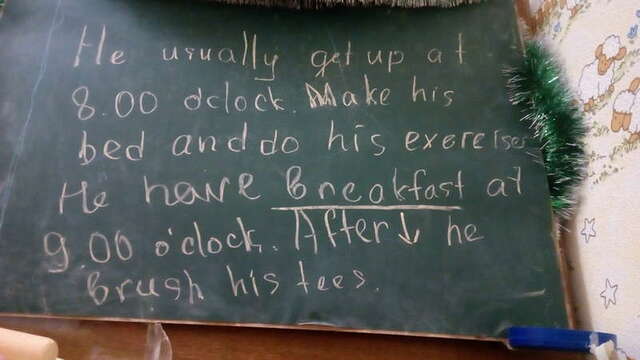 He usually get up at
8.00 o'clock. Make his
bed and do his exercises
He have breakfast at
9.00 o'clock. After ↓ he
brush his tees.